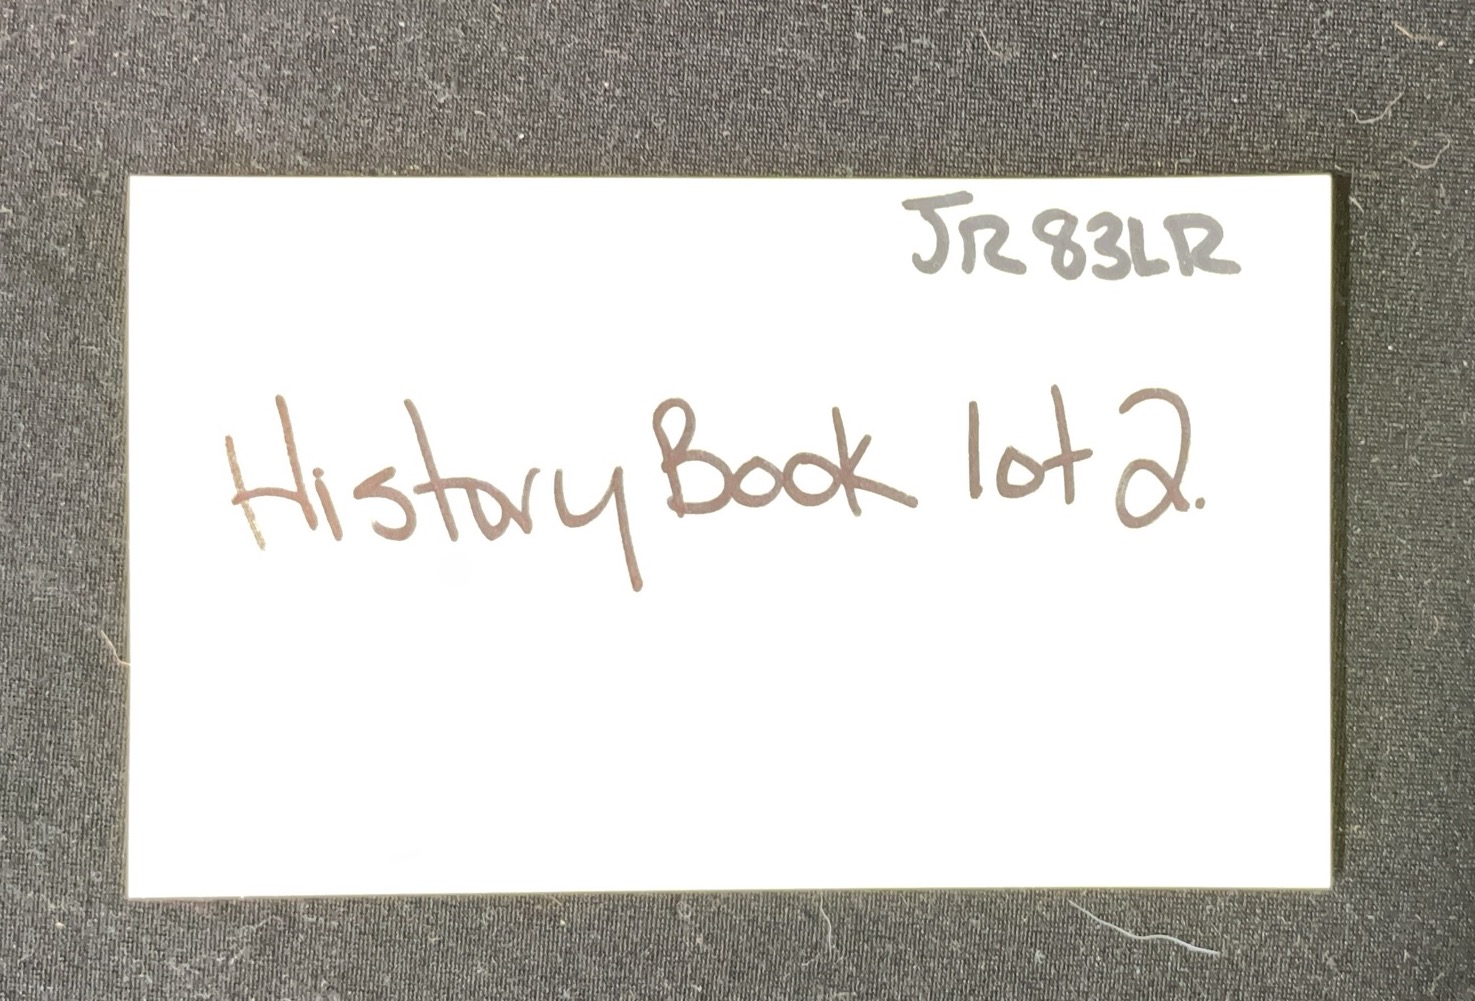 JR83LR
History Book lot 2.